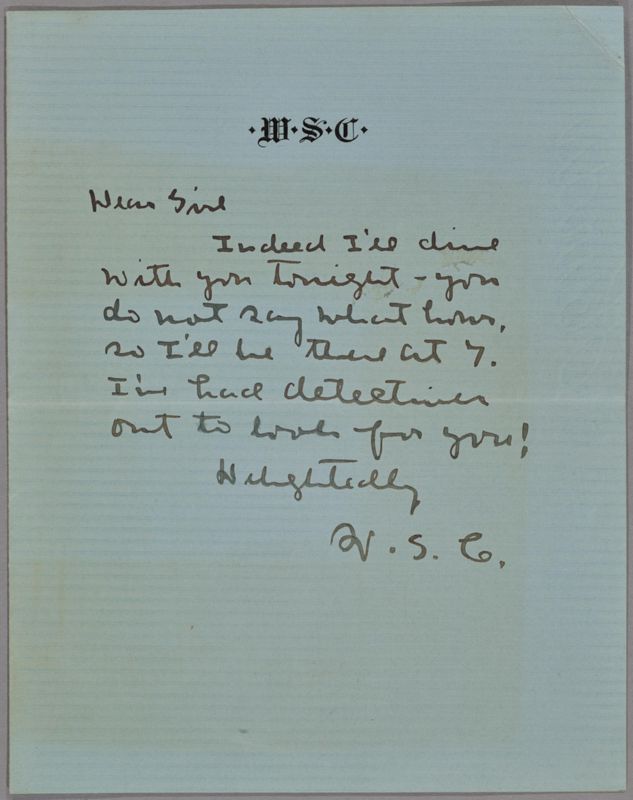 ·W·S·C·
Dear Sire
Indeed I'll dine
with you tonight – you
do not say what hour,
so I'll be there at 7.
I've had detectives
out to look for you!
Delightedly
W. S. C.